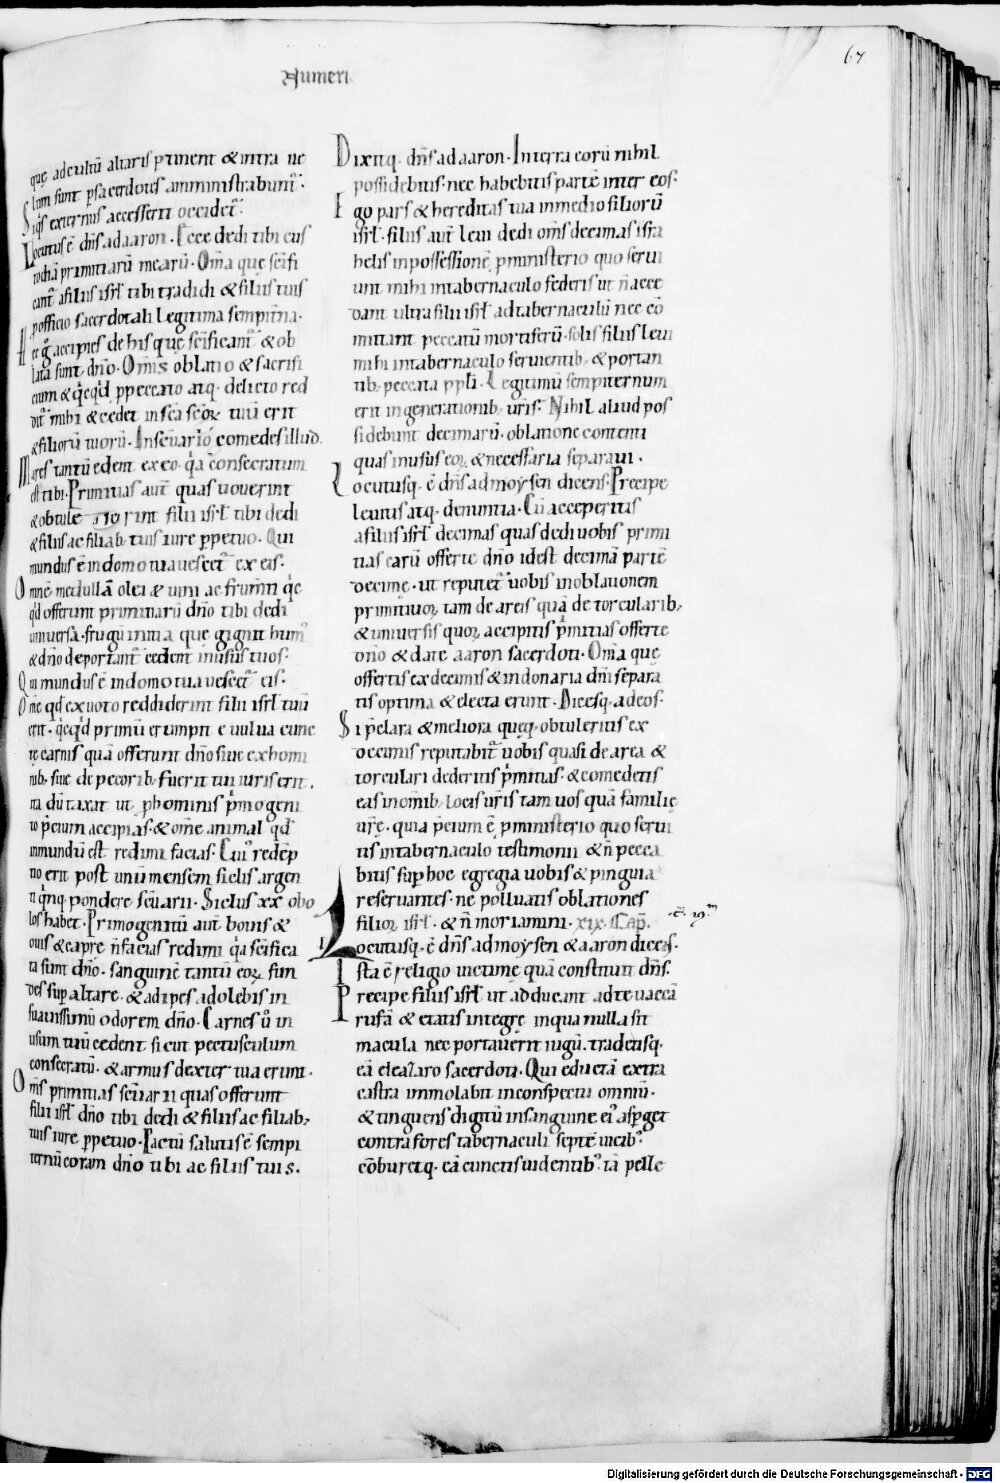 67
Numeri
quę ad cultū altaris ꝑtinent & intra ue
lum sunt ꝑ sacerdotes amministrabunt̄.
Siq̄s externus accesserit occidet̄.
Locutus ē dn̄s ad aaron. Ecce dedi tibi cus
todiā primitiarū mearū. Om̄a quę sc̄ifi
cant̄ a filiis isrl̄ tibi tradidi & filiis tuis
ꝓ officio sacerdotali legitima sempit̄na.
Hec g̊ accipies de his quę sc̄ificant̄ & ob
lata sunt dn̄o. Om̄is oblatio & sacrifi
cium & qͥcqͥd ꝓ peccato atq. delicto red
dit̄ mihi & cedet in sc̄a sc̄oꝝ tuū erit
& filiorū tuorū. In sc̄uario comedes illud.
Mares tantū edent ex eo. qͣa consecratum
est tibi. Primitias aut̄ quas uouerint
& obtule rint filii isrl̄ tibi dedi
& filiis ac filiab; tuis iure ꝑpetuo. Qui
mundus ē in domo tua uescet̄ ex eis.
Omnē medullā olei & uini ac frum̄ti qͥc
qd offerunt primitiarū dn̄o tibi dedi
uniuersa frugū initia quę gignit hum̄
& dn̄o deportant̄ cedent in usus tuos.
Qui mundus ē in domo tua uescet̄ eis.
Om̄e qd̄ ex uoto reddiderint filii isrl̄ tuū
erit. qͥcqͥd primū erumpit e uulua cunc
tę carnis quā offerunt dn̄o siue ex homi
nib; siue de pecorib; fuerit tui iuris erit.
ita dū taxat ut ꝓ hominis pͥmogeni
to p̄cium accipias. & om̄e animal qd̄
inmundū est redimi facias. Cui᾿ redēp
tio erit post unū mensem siclis argen
ti qͥnq; pondere sc̄uarii. Siclus xx obo
los habet. Primogenitū aut̄ bouis &
ouis & capre n̄ facias redimi qͣa sc̄ifica
ta sunt dn̄o. sanguinē tantū eoꝝ fun
des suꝑ altare. & adipes adolebis in
suauissimū odorem dn̄o. Carnes u̇ in
usum tuū cedent sicut pectusculum
consecratū. & armus dexter tua erunt.
Om̄s primitias sc̄uarii quas offerunt
filii isrl̄ dn̄o tibi dedi & filiis ac filiab;
tuis iure ꝑpetuo. Pactū salutis ē sempi
ternū coram dn̄o tibi ac filiis tuis.
Dixitq. dn̄s ad aaron. In terra eorū nihil
possidebitis. nec habebitis partē inter eos.
Ego pars & hereditas tua in medio filiorū
isrl̄. filiis aut̄ leui dedi om̄s decimas isra
helis in possessionē ꝓ ministerio quo serui
unt mihi in tabernaculo federis ut n̄ acce
dant ultra filii isrl̄ ad tabernaculū nec cō
mittant peccatū mortiferū. solis filiis leui
mihi in tabernaculo seruientib; & portan
tib; peccata ppl̄i. Legitimū sempiternum
erit in generationib; ur̄is. Nihil aliud pos
sidebunt decimarū. oblatione contenti
quas in usus eoꝝ & necessaria separaui.
Locutusq. ē dn̄s ad moysen dicens. Precipe
leuitis atq. denuntia. Cū acceperitis
a filiis isrl̄ decimas quas dedi uobis primi
tias earū offerte dn̄o id est decimā partē
decime. ut reputet̄ uobis in oblationem
primitiuoꝝ tam de areis quā de torcularib;
& uniuersis quoꝝ accipitis pͥmitias offerte
dn̄o & date aaron sacerdoti. Om̄a quę
offertis ex decimis & in donaria dn̄i separa
tis optima & electa erunt. Dicesq. ad eos.
Si p̄clara & meliora quęq. obtuleritis ex
decimis reputabit̄ uobis quasi de area &
torculari dederitis pͥmitias. & comedetis
eas in om̄ib; locis ur̄is tam uos quā familię
ur̄ę. quia p̄cium ē ꝓ ministerio quo serui
tis in tabernaculo testimonii & n̄ pecca
bitis suꝑ hoc egregia uobis & pinguia
reseruantes. ne polluatis oblationes
filioꝝ isrl̄. & n̄ moriamini. xix. Cap̄.
c̄. 19ᵐ
Locutusq. ē dn̄s ad moysen & aaron dicēs.
Ista ē religio uictime quā constituit dn̄s.
Precipe filiis isrl̄ ut adducant ad te uaccā
rufā & etatis integrę in qua nulla sit
macula nec portauerit iugū. tradetisq.
eā eleazaro sacerdoti. Qui eductā extra
castra immolabit in conspectu omniū.
& tinguens digitū in sanguine ei᾿ asꝑget
contra fores tabernaculi septē uicib᾿.
cōburetq. eā cunctis uidentib᾿. tā pelle
Digitalisierung gefördert durch die Deutsche Forschungsgemeinschaft - DFG